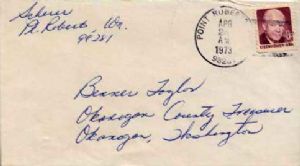 Scherer
Pt. Roberts Wn.
98281
POINT ROBERTS
APR
A.M
1973
EISENHOWER·USA
Benner Taylor
Okanogan County Treasurer
Okanogan, Washington